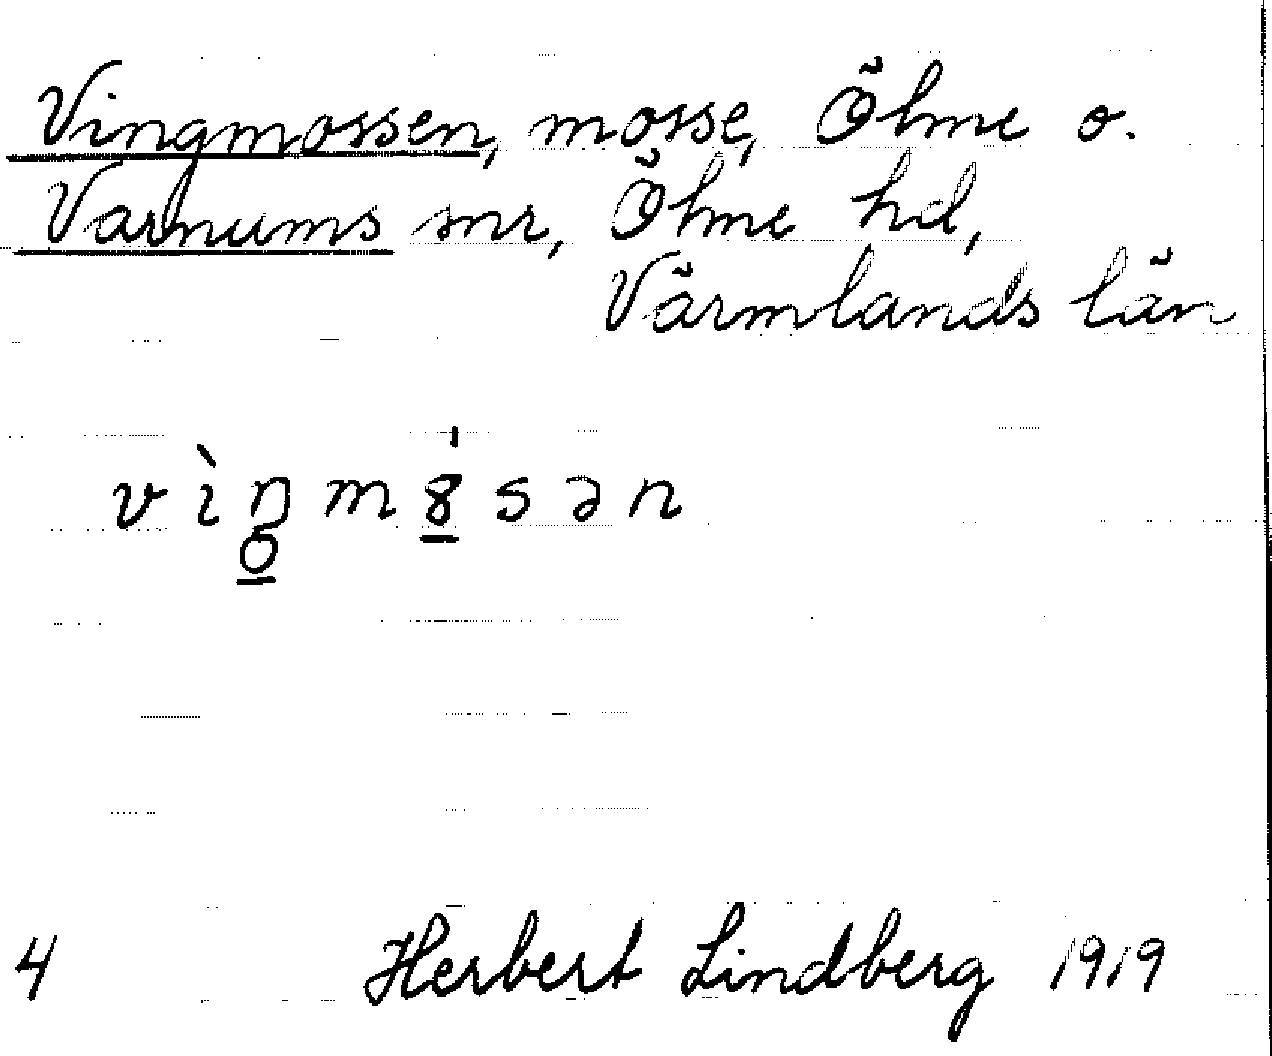 Vingmossen, mosse, Ölme o.
Varnums snr, Ölme hd,
Värmlands län
4 Herbert Lindberg 1919